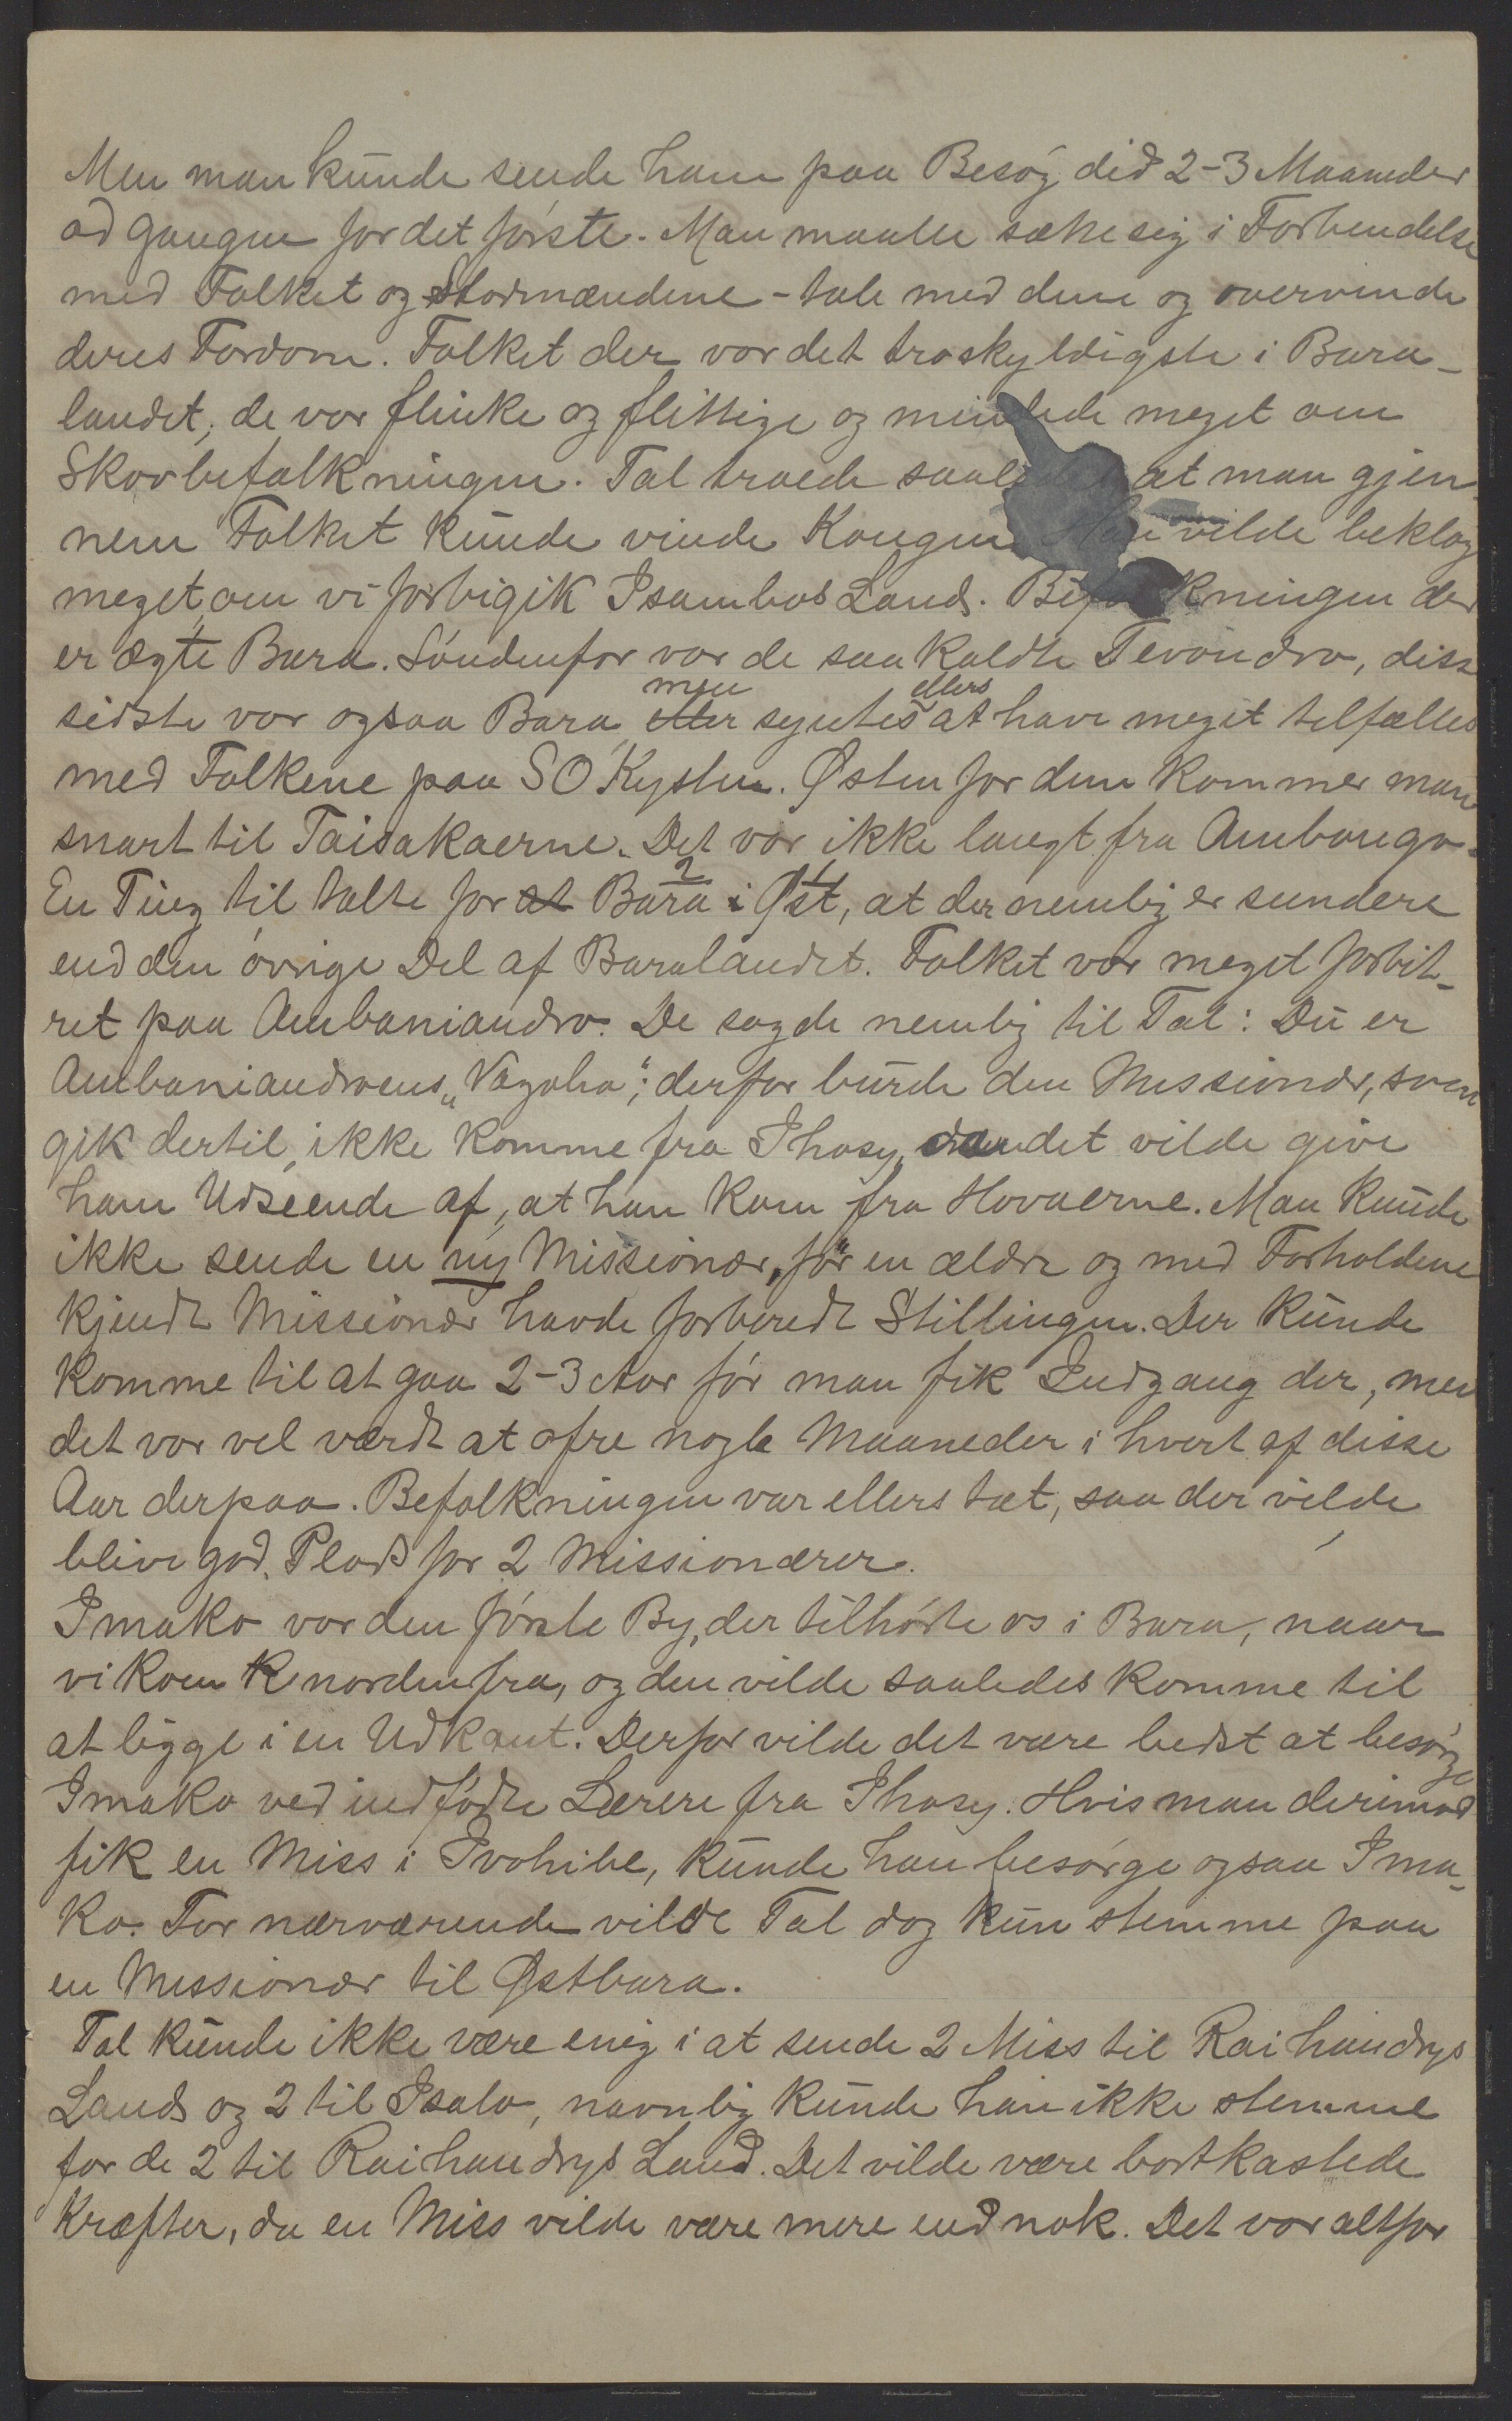 Men man kunde sende ham paa Besøg did 2-3 Maaneder
ad Gangen for det første. Man maatte sætte sig i Forbindelse
med Folket og Stormændene - tale med dem og overvinde
deres Fordom. Folket der var det troskyldigste i Bara-
landet; de var flinke og flittige og mindede meget om
Skovbefolkningen. Tal troede saaledes at man gjen-
nem Folket kunde vinde Kongen. Han vilde beklag
meget, om vi forbigik Isambos Land. Befolkningen der
er ægte Bara. Søndenfor var de saa kaldte Tevondro, diss
sidste var ogsaa Bara men syntes ellers at have meget tilfælles
med Folkene paa SO Kysten. Østen for dem kommer man
snart til Taisakaerne. Det var ikke langt fra Ambongo.
En Ting til talte for at Bara i Øst, at der nemlig er sundere
end den øvrige Del af Baralandet. Folket var meget forbit-
ret paa Ambaniandro. De sagde nemlig til Tal: Du er
Ambaniandroens „Vazaha"; derfor burde den Missionær, som
gik dertil, ikke komme fra Ihosy, det vilde give
ham Udseende af, at han kom fra Hovaerne. Man kunde
ikke sende en ny Missionær, før en ældre og med Forholdene
kjendt Missionær havde forberedt Stillingen. Der kunde
komme til at gaa 2-3 Aar før man fik Indgang der, men
det var vel værdt at ofre nogle Maaneder i hvert af disse
Aar derpaa. Befolkningen var ellers tæt, saa der vilde
blive god Plads for 2 Missionærer.
Imako var den første By, der tilhørte os i Bara, naar
vi kom nordenfra, og den vilde saaledes komme til
at ligge i en Udkant. Derfor vilde det være bedst at besørge
Imako ved indfødte Lærere fra Ihosy. Hvis man derimod
fik en Miss i Ivohibe, kunde han besørge ogsaa Ima-
ko. For nærværende vilde Tal dog kun stemme paa
en Missionær til Østbara.
Tal kunde ikke være enig i at sende 2 Miss til Raihandrys
Land og 2 til Isalo, navnlig kunde han ikke stemme
for de 2 til Raihandrys Land. Det vilde være bortkastede
Kræfter, da en Miss vilde være mere end nok. Det var altfor